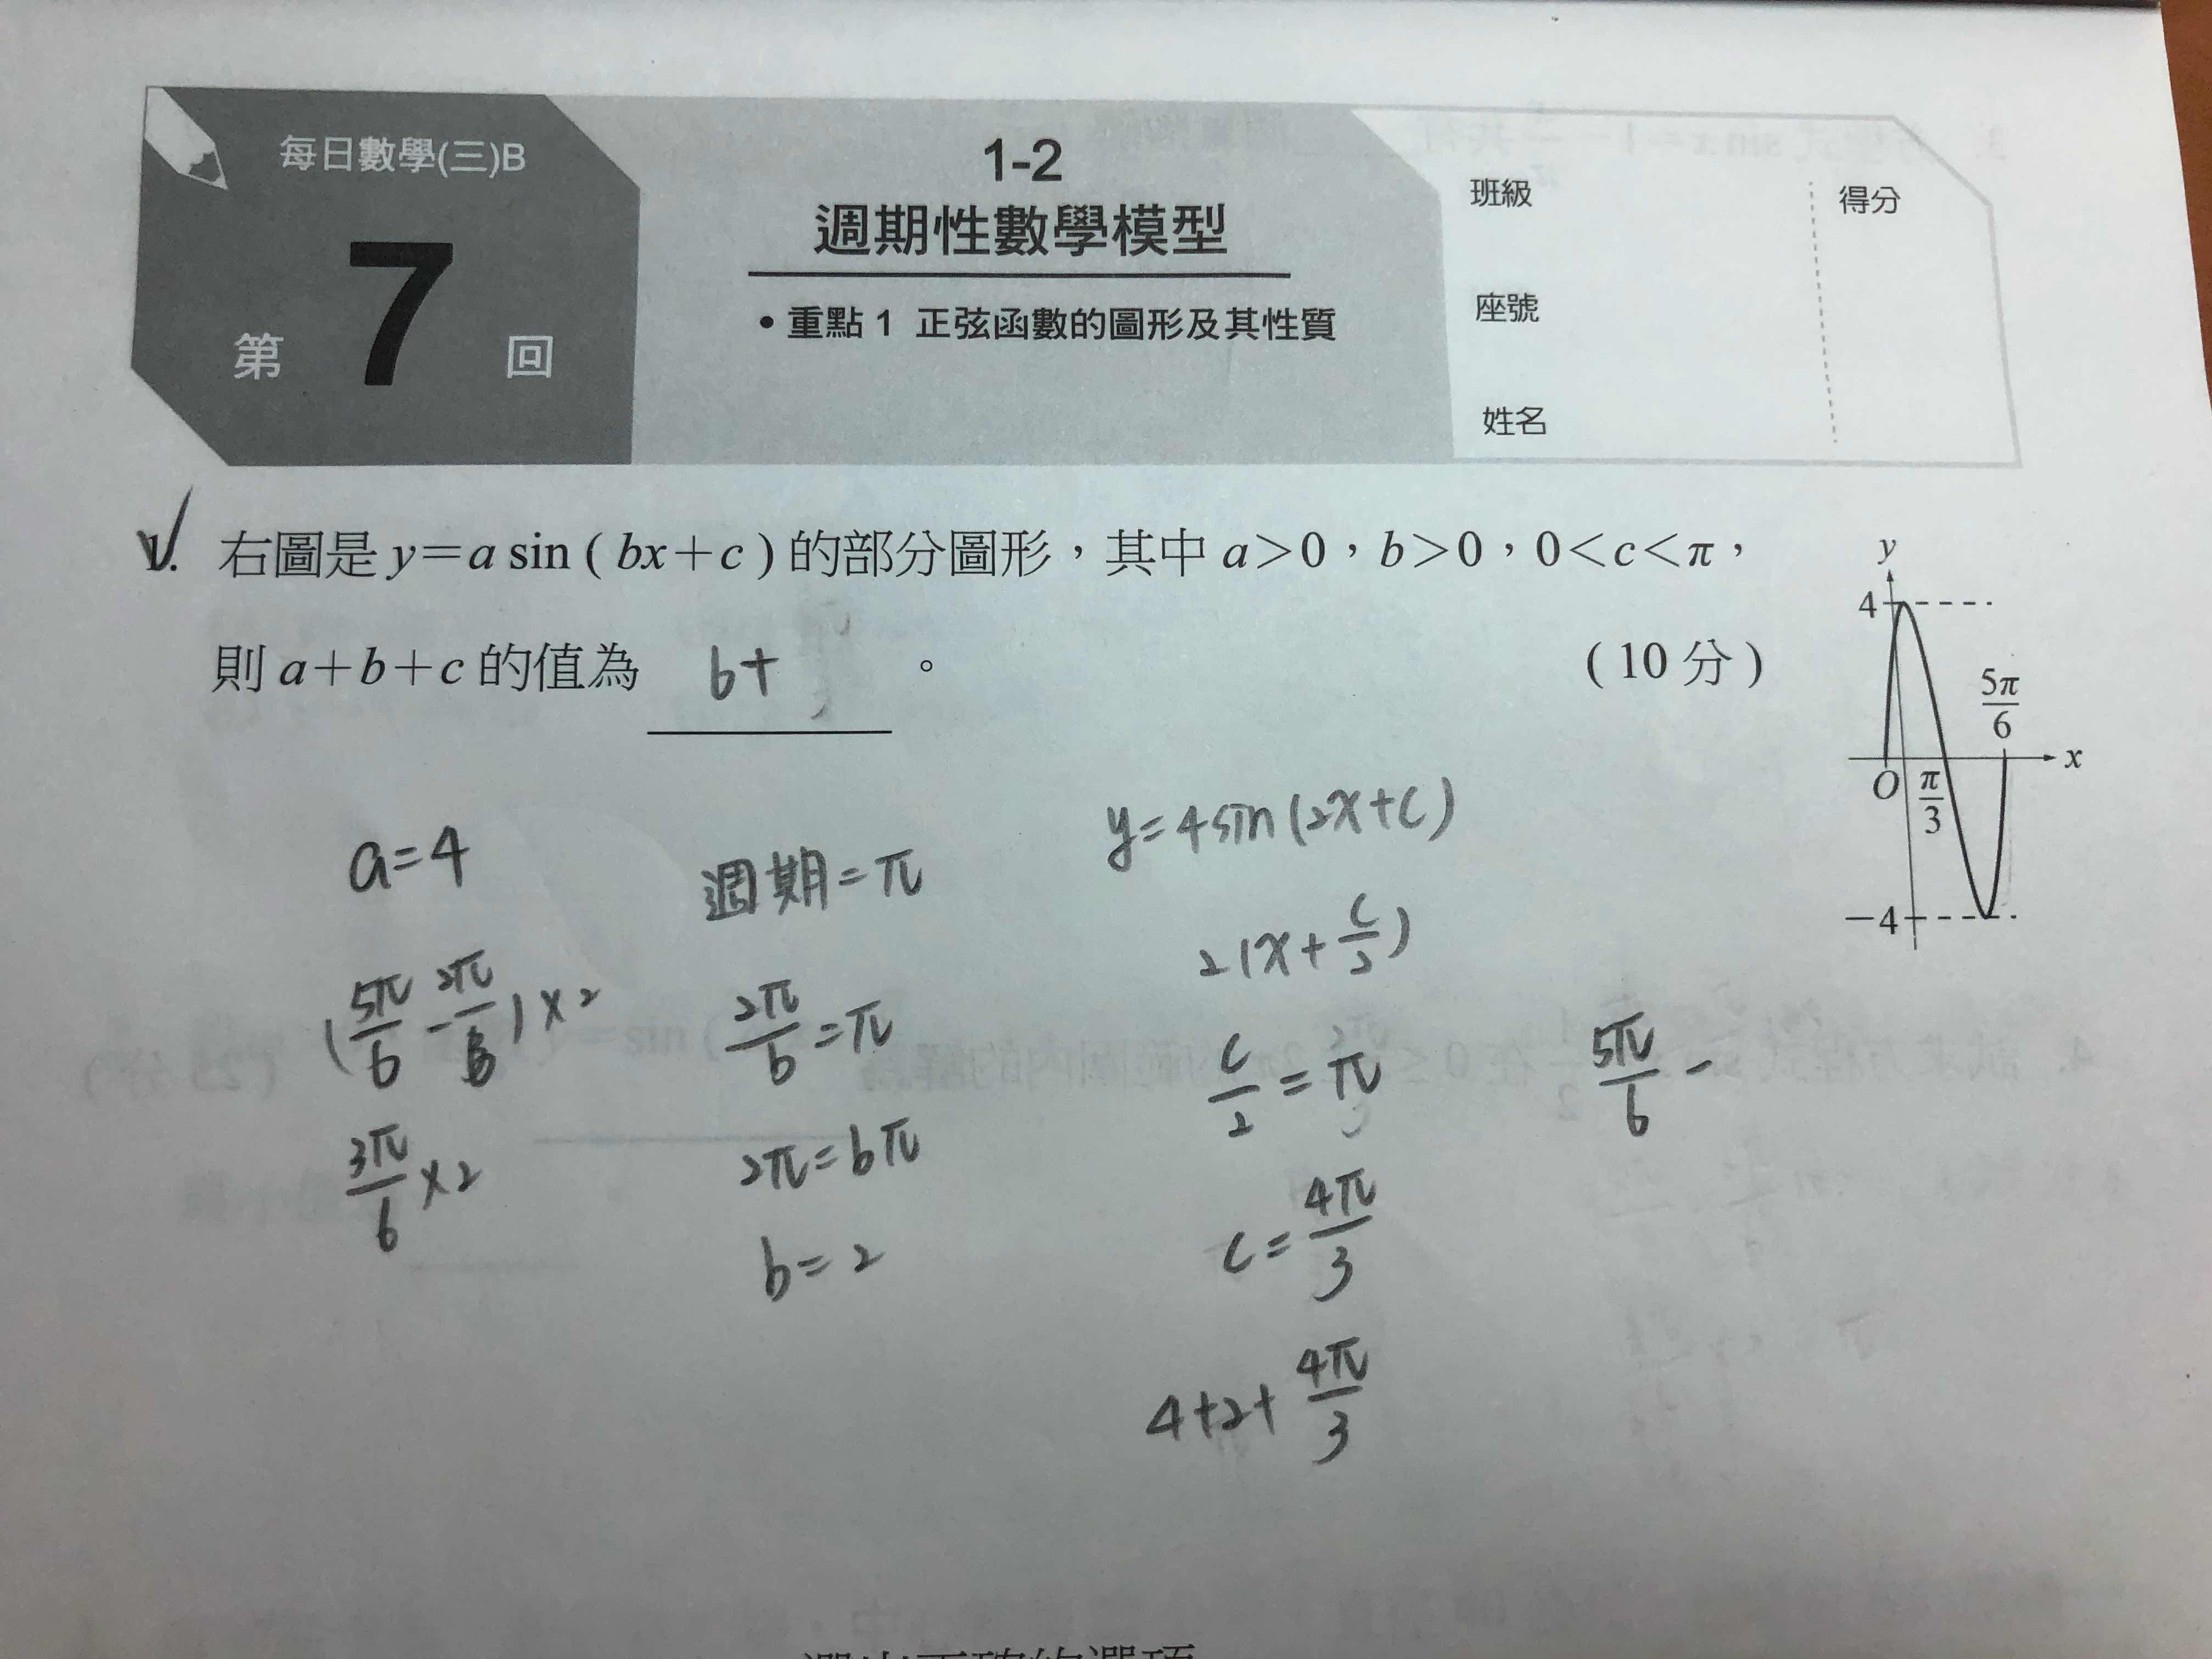 每日數學(三)B
第 7 回
1-2
週期性數學模型
• 重點 1 正弦函數的圖形及其性質
班級
得分
座號
姓名
1. 右圖是 y=a sin ( bx+c ) 的部分圖形，其中 a>0，b>0，0<c<π，
則 a+b+c 的值為 6+ 。 (10 分)
y
4
5π/6
x
O
π/3
-4
a=4
(5π/6 - 2π/6) × 2
3π/6 × 2
週期=π
2π/b = π
2π=bπ
b=2
y=4sin(2x+c)
2(x+c/2)
c/2=π
c=4π/3
4+2+4π/3
5π/6 -